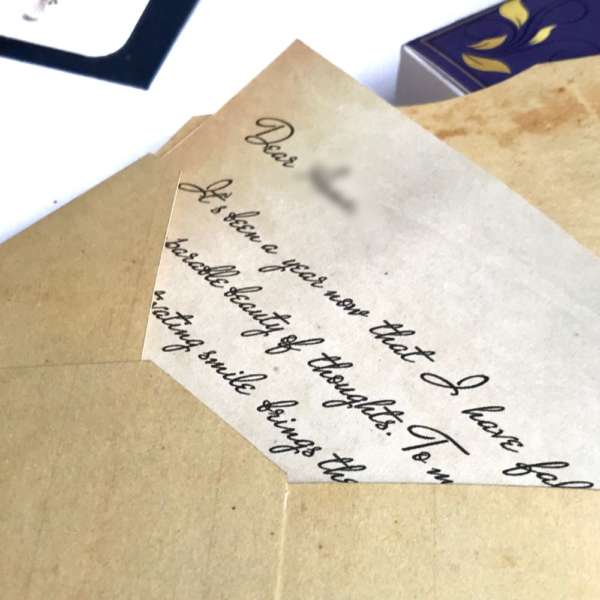 Dear
It's been a year now that I have fal
parable beauty of thoughts. To m
vating smile brings the